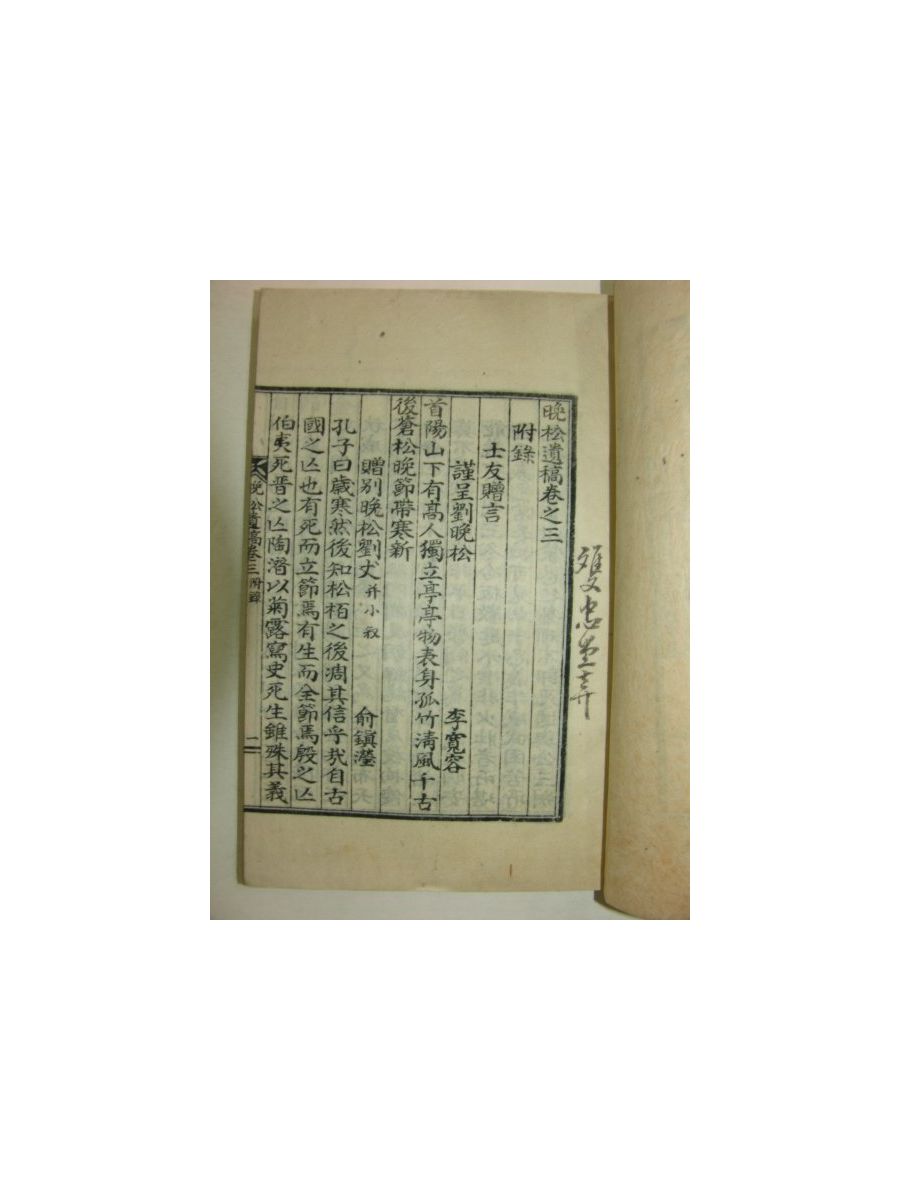 晚松遺稿卷之三
附錄
士友贈言
謹呈劉晚松 李寬容
首陽山下有高人獨立亭亭物表身孤竹淸風千古
後蒼松晚節帶寒新
贈別晚松劉丈 幷小敍 俞鎭瀅
孔子曰歲寒然後知松栢之後凋其信乎㢤自古
國之亾也有死而立節焉有生而全節焉殷之亾
伯夷死晋之亾陶潛以菊露寫史死生錐殊其義
晚松遺稿卷三 附錄 一